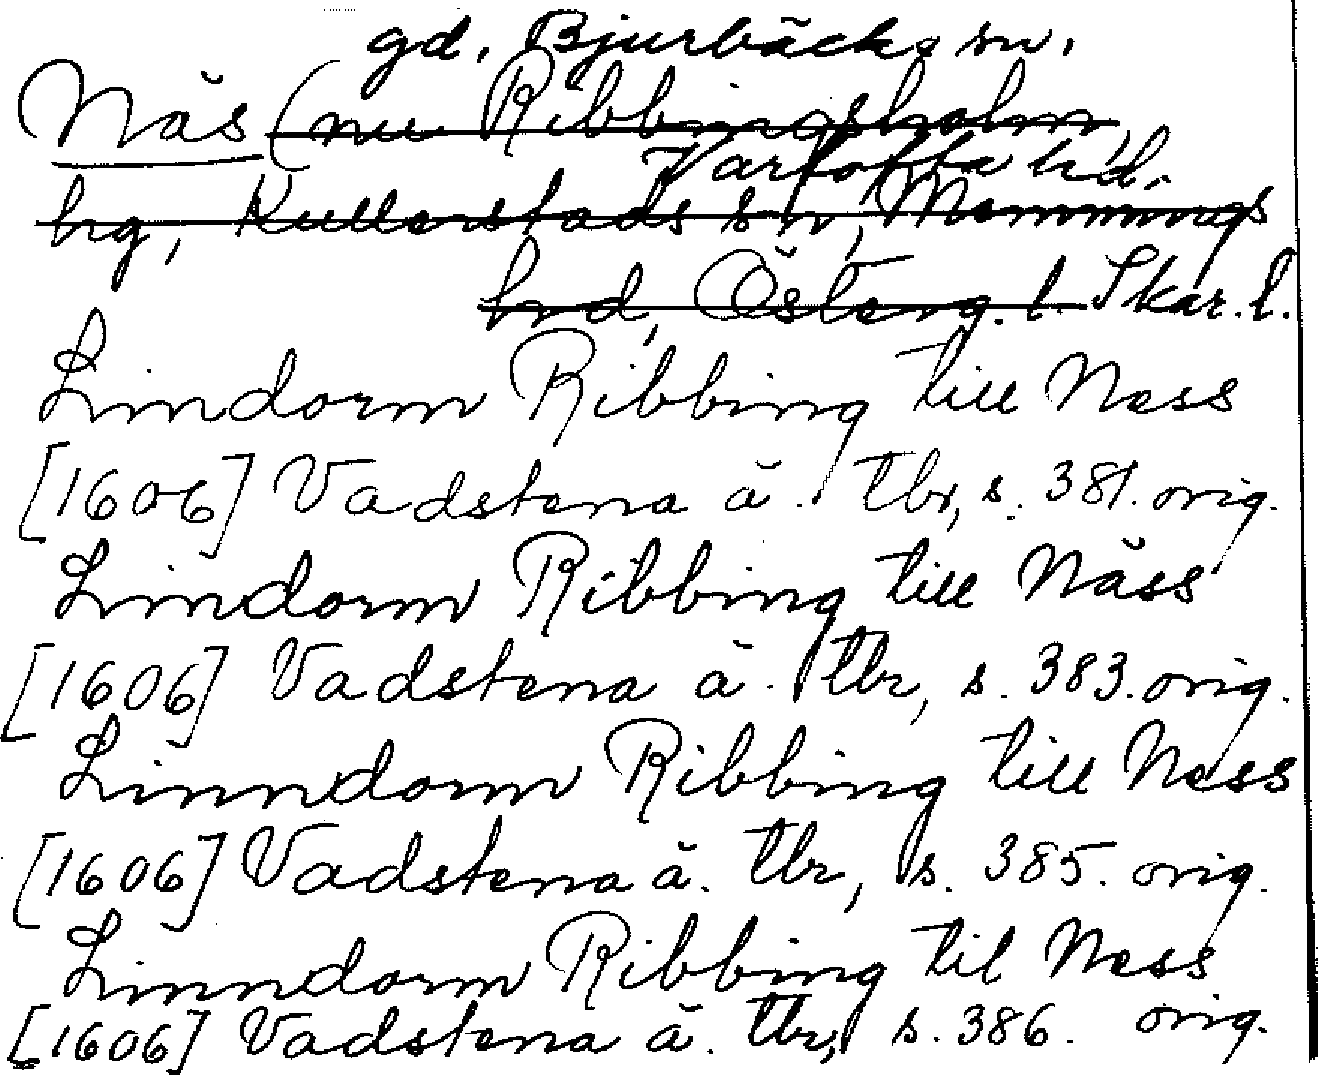 gd. Bjurbäcks sn.
Näs (nu Ribbingsholm,
Vartofta hd.
hg, Kullerstads sn, Memmings
hrd, Österg. l. Skar. l.
Lindorm Ribbing till Ness
[1606] Vadstena ä. tbr, s. 381. orig.
Lindorm Ribbing till Näss
[1606] Vadstena ä. tbr, s. 383. orig.
Linndorm Ribbing till Ness
[1606] Vadstena ä. tbr, s. 385. orig.
Linndorm Ribbing til Ness
[1606] Vadstena ä. tbr, s. 386. orig.